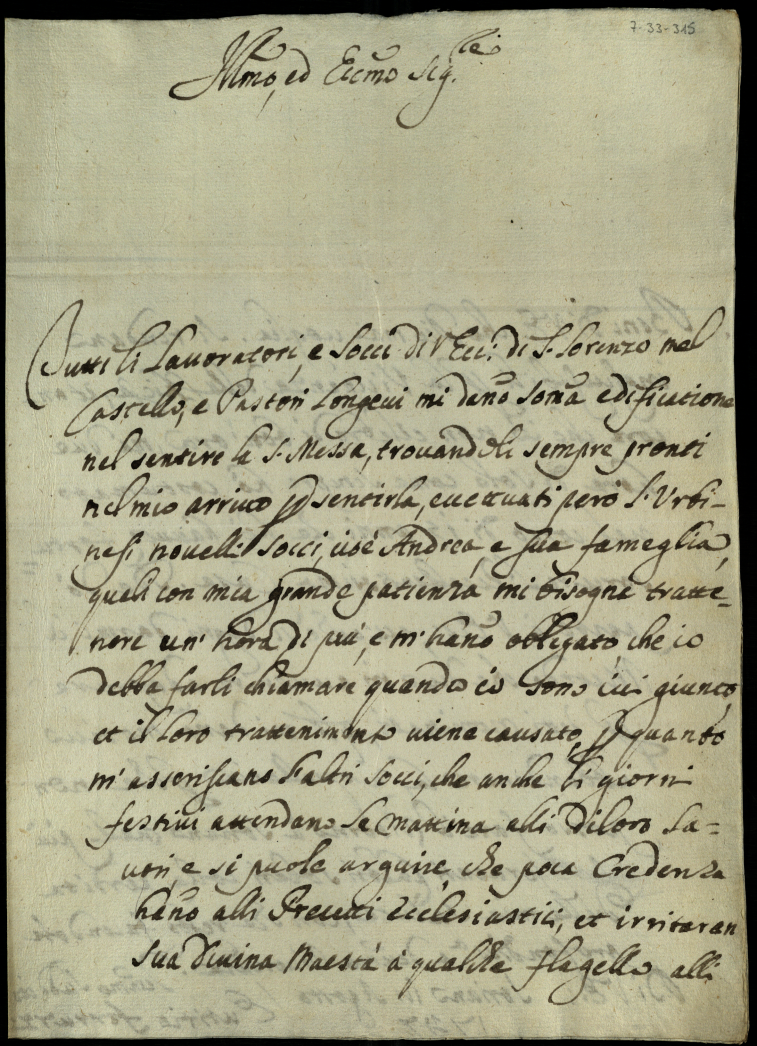 7-33-315
Ill.mo, ed Ecc.mo Sig.re
Tutti li Lavoratori, e Socci di V. Ecc: di S. Lorenzo nel
Castello, e Pastori Longevi mi dano soma edificatione
nel sentire la S. Messa, trovandoli sempre pronti
nel mio arrivo p sentirla, eccettuati però l'Urbi-
nesi novelli Socci, cioè Andrea, e sua fameglia,
quali con mia grande patienza mi bisogna tratte-
nere un' hora di più, e m'hano obbligato che io
debba farli chiamare quando io sono ivi giunto,
et il loro trattenimento viene causato, p quanto
m'asseriscano l'altri Socci, che anche li giorni
festivi attendano la mattina alli di loro La-
vori, e si puole arguire che poca Credenza
hano alli Precetti Ecclesiastici, et irritaran
Sua Divina Maestà à qualche flagello alli